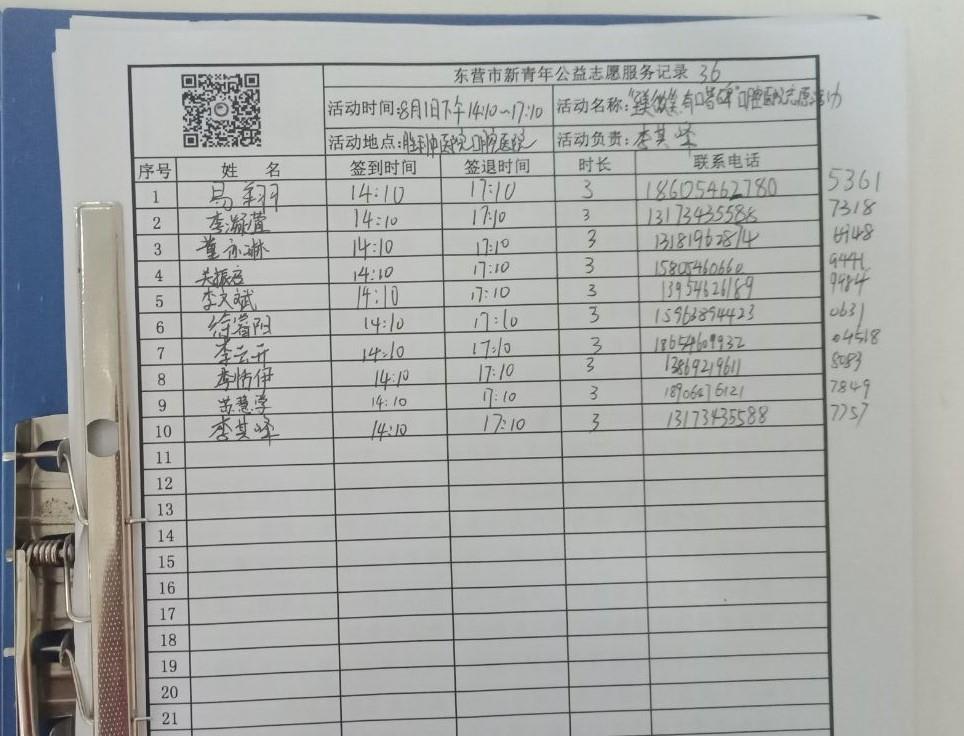 东营市新青年公益志愿服务记录 36
活动时间:8月1日下午14:10~17:10 活动名称:口腔医院志愿活动
活动地点:胜利口腔医院 活动负责:李其峰
序号 姓 名 签到时间 签退时间 时长 联系电话
1 易 14:10 17:10 3 18605462780 5361
2 李凝萱 14:10 17:10 3 13173435588 7318
3 董亦琳 14:10 17:10 3 13181962814
4 振 14:10 17:10 3 15805460660 9441
5 李文斌 14:10 17:10 3 13954626189 9484
6 徐睿阳 14:10 17:10 3 15963894423 0631
7 李云开 14:10 17:10 3 18654609932 04518
8 李怡伊 14:10 17:10 3 13869219611 8083
9 苗慧学 14:10 17:10 3 7849
10 李其峰 14:10 17:10 3 13173435588 7757
11
12
13
14
15
16
17
18
19
20
21